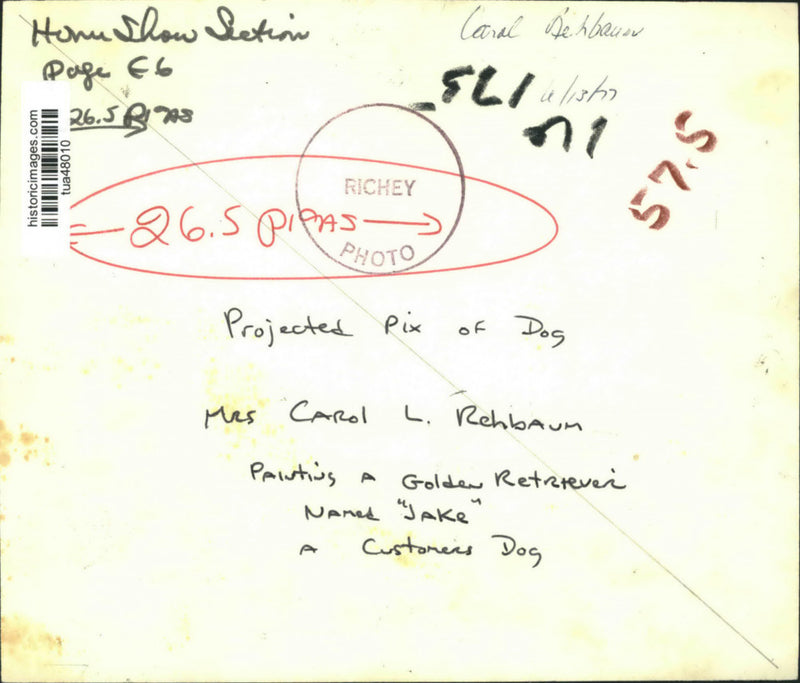 Home Show Section
Page E6
26.5 PICAS
Carol Rehbaum
57.5
historicimages.com
tua48010
RICHEY
PHOTO
26.5 PICAS
Projected Pix of Dog
Mrs Carol L. Rehbaum
Painting a Golden Retriever
Named "Jake"
a Customers Dog